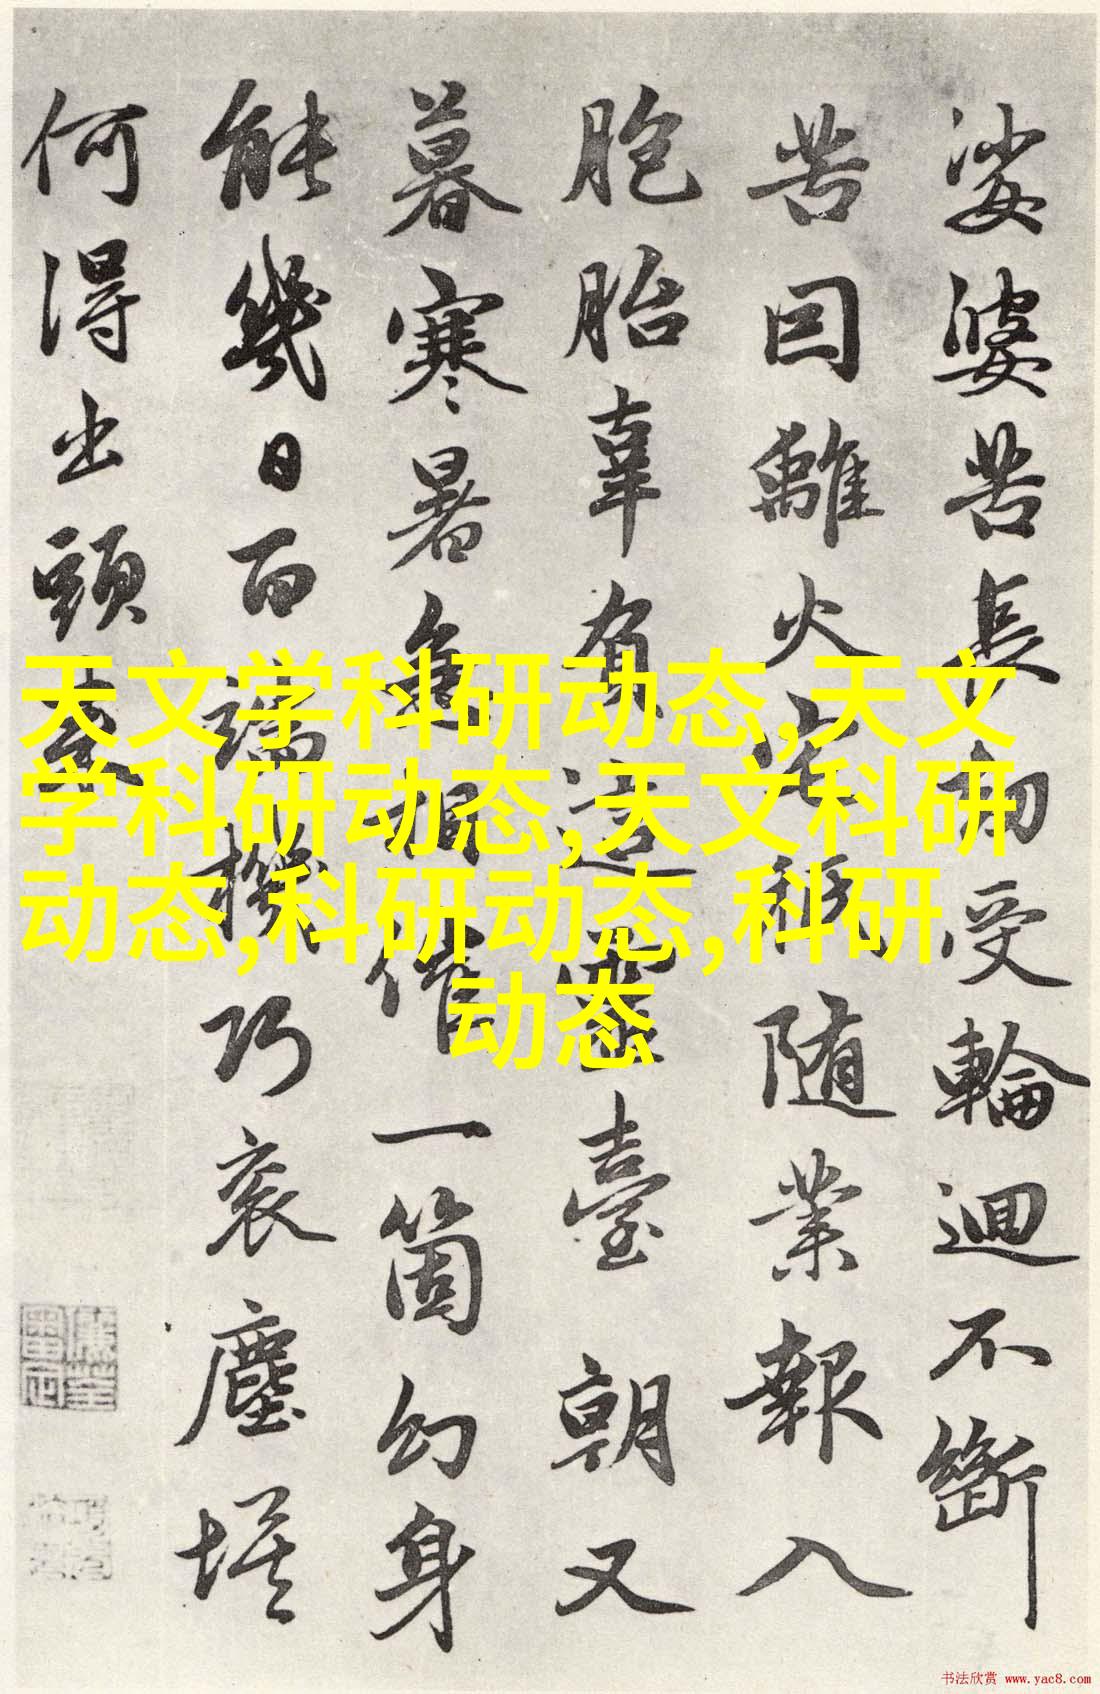 娑婆苦長劫受輪迴不斷
苦因離火宅秪隨業報入
胞胎辜負這靈臺朝又
暮寒暑急相催一箇幻身
能幾日百端機巧衮塵埃
何得出頭來
天文学科研动态,天文
学科研动态,天文科研
动态,科研动态,科研
动态
书法欣赏 www.yac8.com